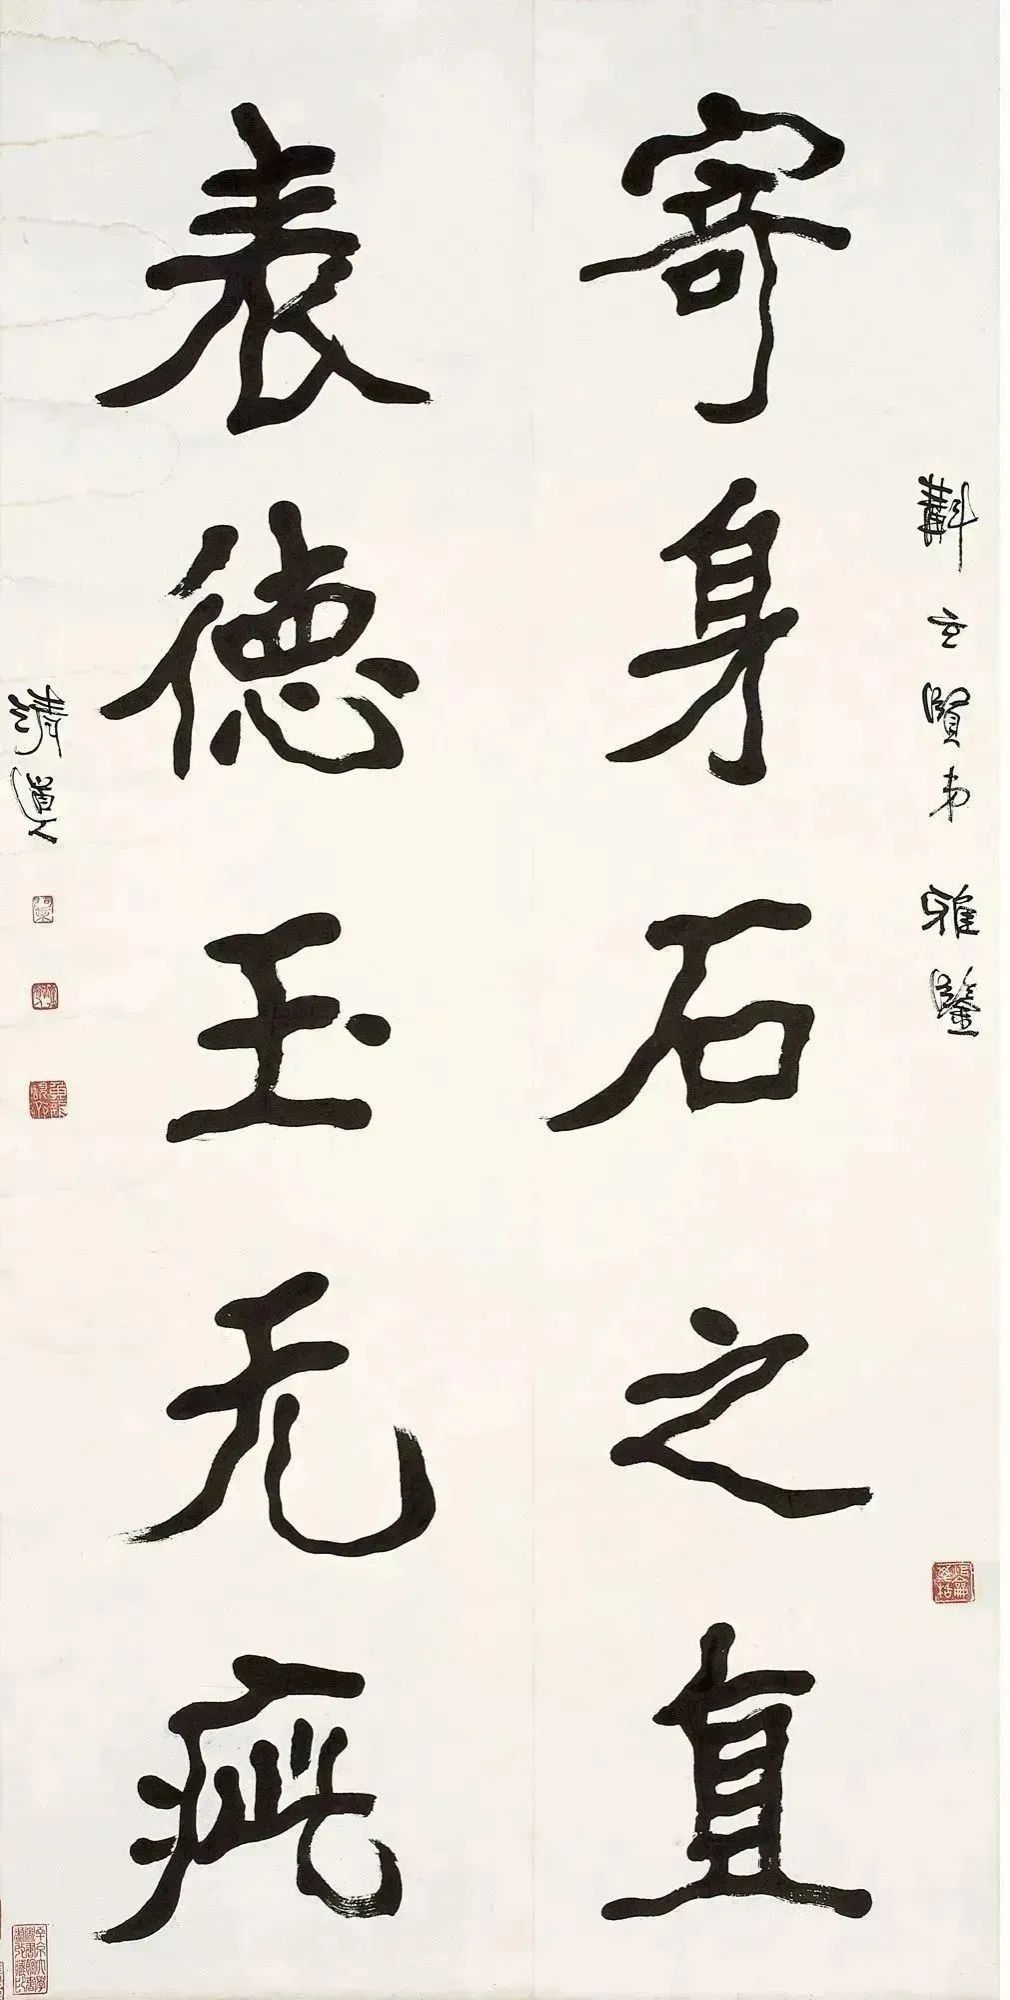 斠玄賢弟雅鑒
寄身石之直
表德玉无疵
清道人